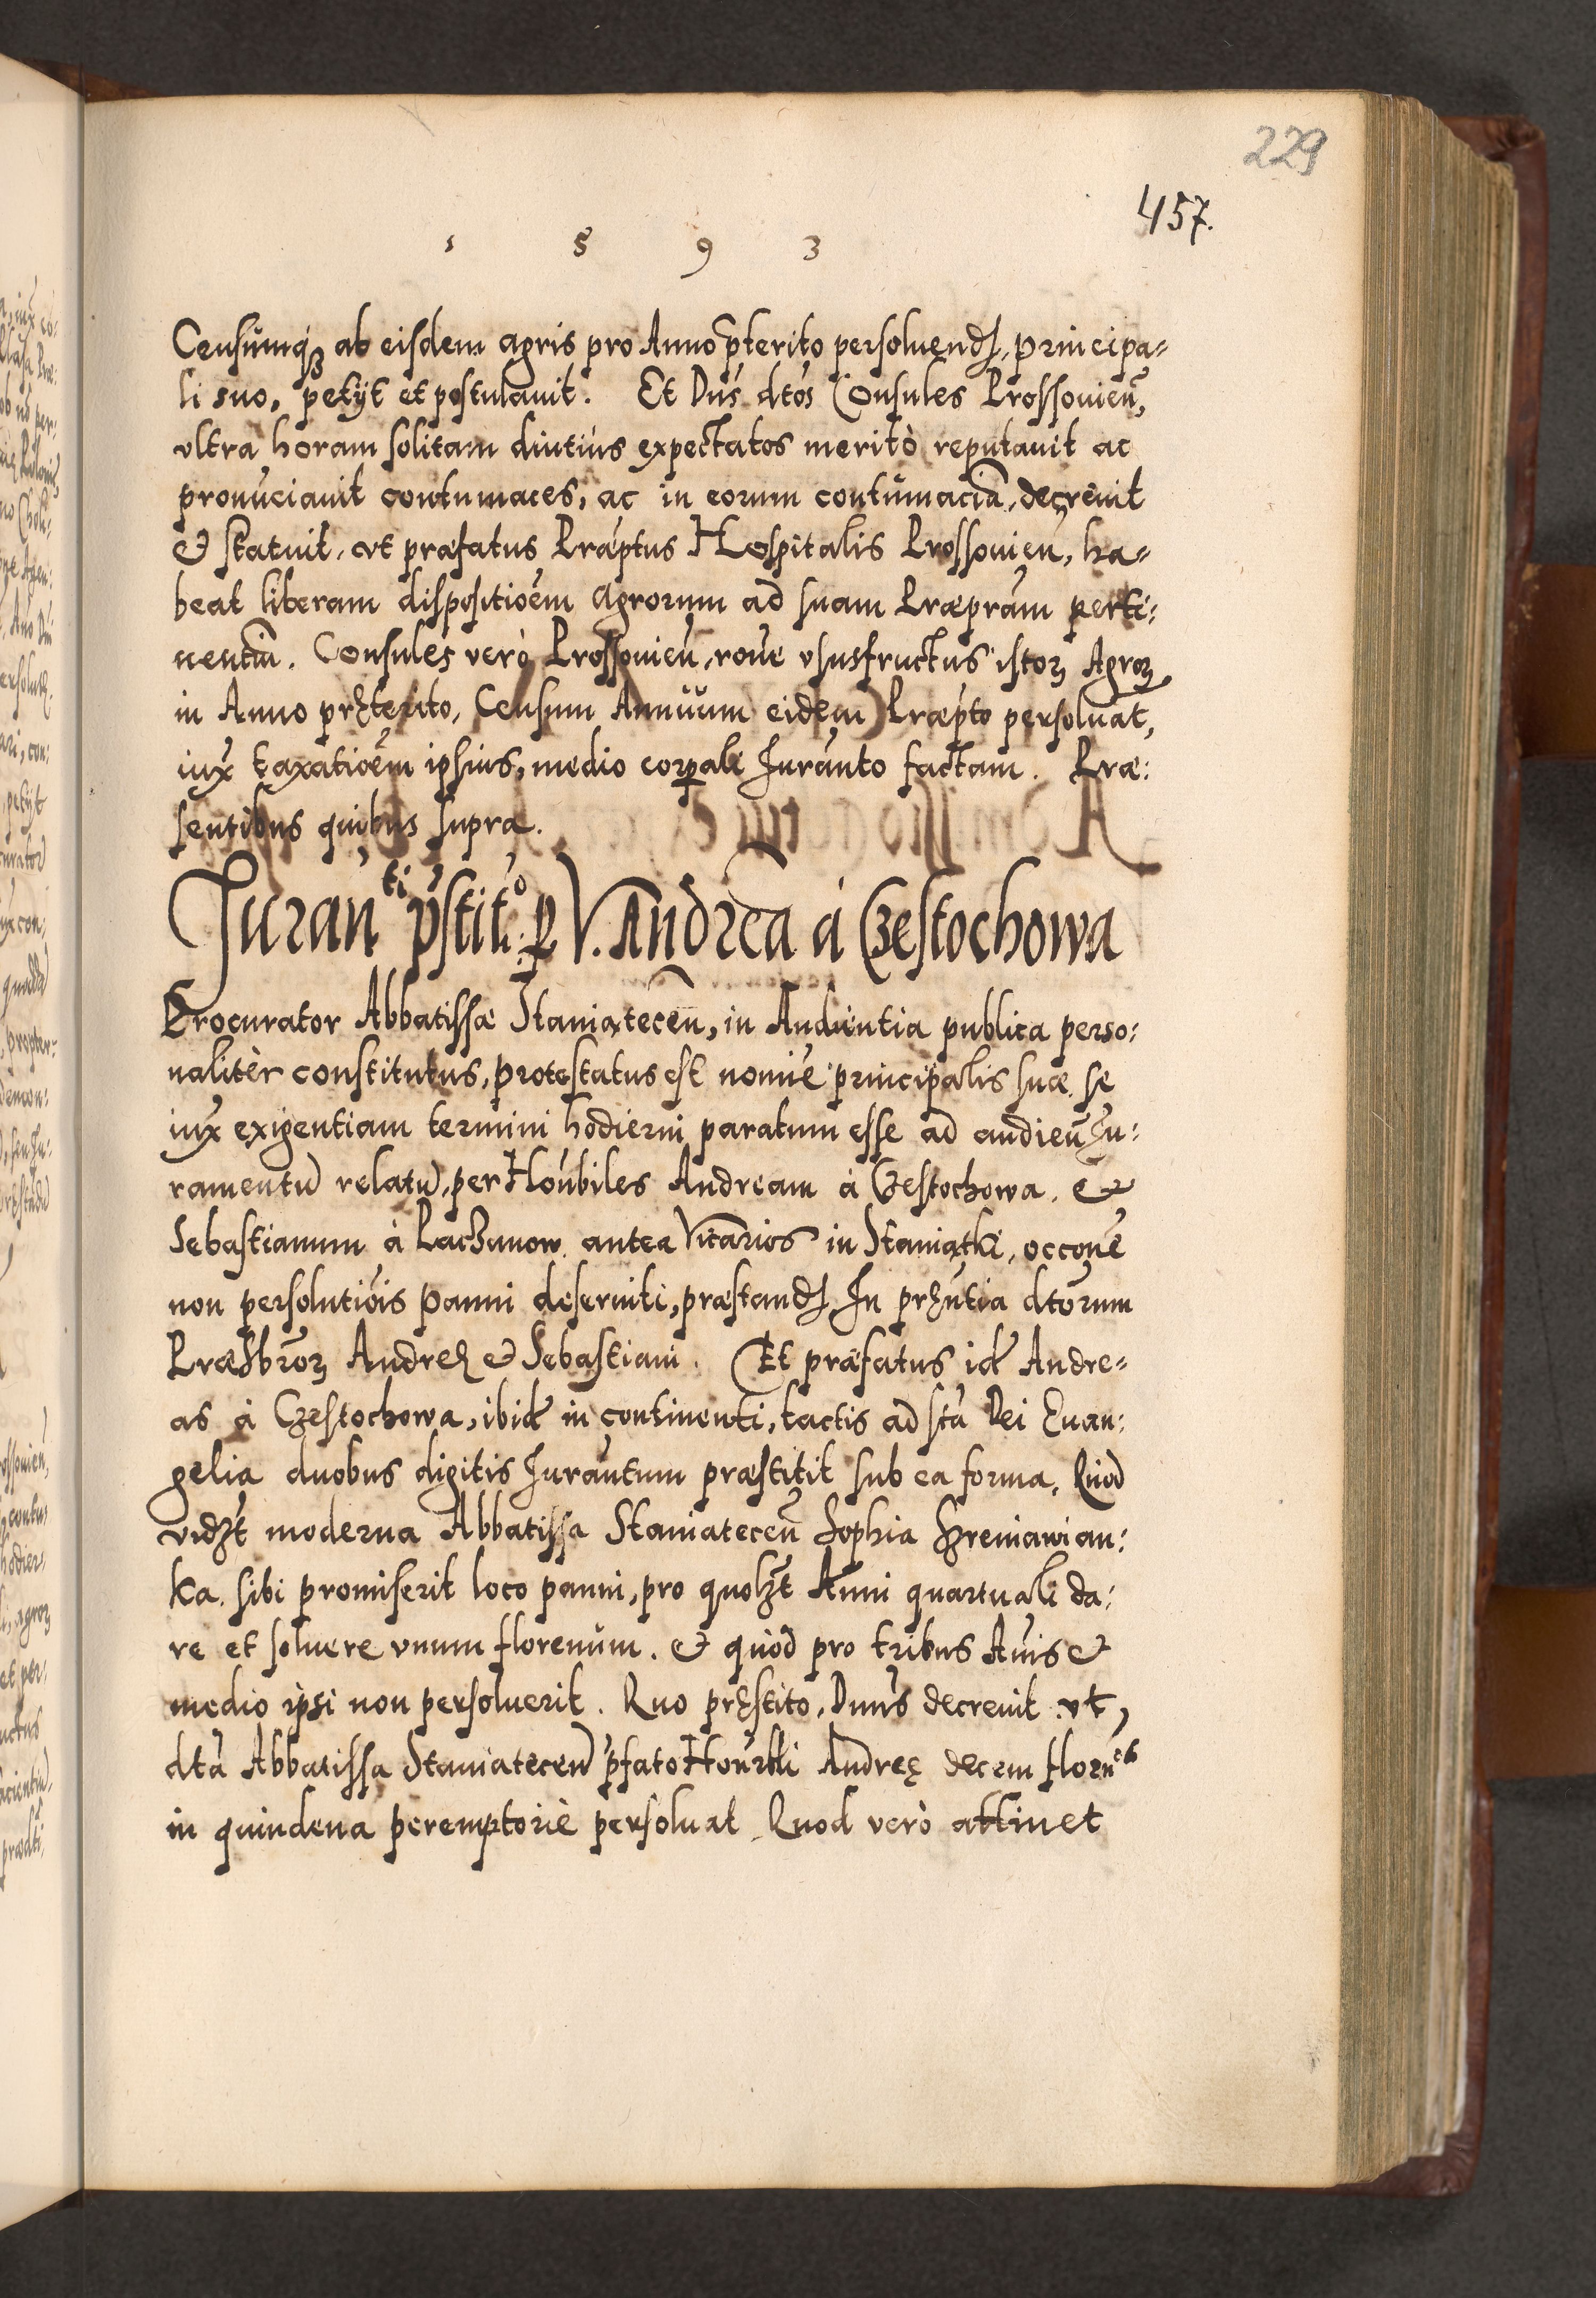 229
457.
1 5 9 3
Censumq́ꝫ ab eisdem agris pro Anno p̃terito persoluendj, principa=
li suo, petÿt et postulauit. Et Dũs dtos Consules Prossouieñ,
vltra horam solitam diutiùs expectatos meritò reputauit ac
pronũciauit contumaces, ac in eorum contumaciã, decreuit
& statuit, vt præfatus Præptus Hospitalis Prossouieñ, ha=
beat liberam dispositioẽm agrorum ad suam Præpram perti:
nentiũ. Consules verò Prossouieñ, roñe vsusfructus istoꝝ Agroꝝ
in Anno pręterito, Censum Annuum eidem Præpto persoluãt,
iux̃ taxatioẽm ipsius, medio corꝑali Iuraṅto factam. Præ:
sentibus quibus supra.
Iuranti p̃stitio. ꝑ V. Andrea à Czestochowa
Procurator Abbatissæ Staniątecen̄, in Audientia publica perso:
naliter constitutus, protestatus est noniẽ principalis suæ, se
iux̃ exigentiam termini hodierni paratum esse ad audieñ Iu:
ramentũ relatũ, per Honb́iles Andream à Czestochowa, &
Sebastianum à Laczanow antea Vicarios in Staniątki, occoñe
non persolutiõis panni deseruiti, præstandj. In pręñtia dtorum
Præsbroꝝ Andreę & Sebastiani. Et præfatus idẽ Andre=
as à Czestochowa, ibidẽ in continenti, tactis ad sta Dei Euan:
gelia duobus digitis Iuraṅtum præstitit sub ea forma. Quod
vidꝫt moderna Abbatissa Staniateceñ Sophia Szreniawian:
ka, sibi promiserit loco panni, pro quolꝫt Anni quartuali da:
re et soluere vnum florenum. & quòd pro tribus Anis &
medio ipsi non persoluerit. Quo pręstito, Dnũs decreuit vt,
dta Abbatissa Stanиateceñ p̃fato Honrbli Andreę decem floreñes
in quindena peremptoriè persoluat. Quod verò attinet